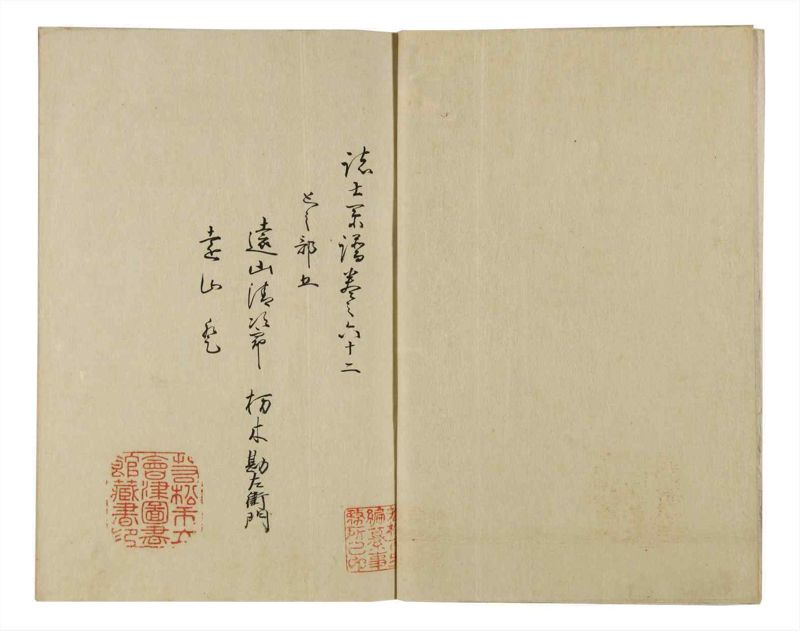 諸士系譜巻之六十二
と之部五
遠山清次郎 栃木勘左衛門
遠山
若松市立
會津圖書
館藏書印
編纂事
務所之印